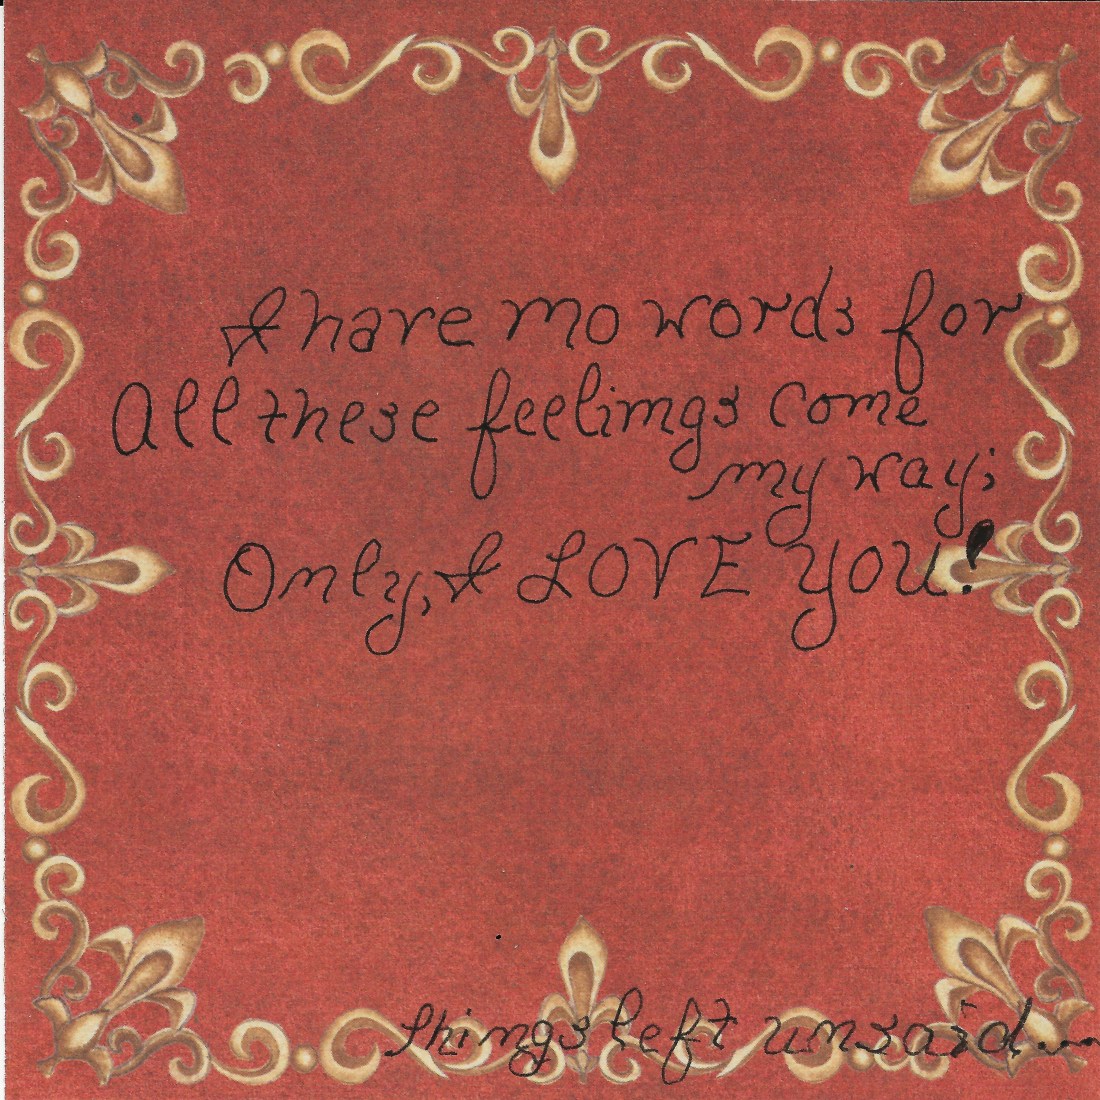 I have no words for
All these feelings come
my way;
Only, I LOVE YOU!
things left unsaid...